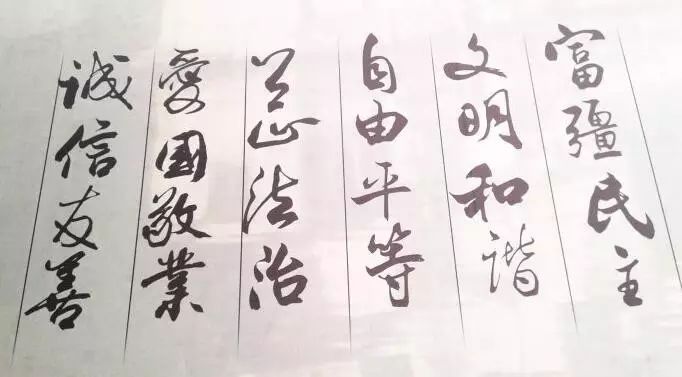 富彊民主
文明和谐
自由平等
公正法治
愛國敬業
诚信友善